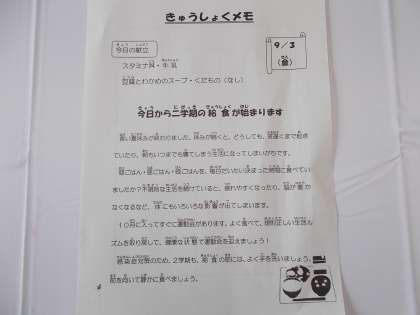 きゅうしょくメモ
今日の献立
9/3
(金)
スタミナ丼・牛乳
豆腐とわかめのスープ・くだもの(なし)
今日から二学期の給食が始まります
長い夏休みが終わりました。休みが続くと、どうしても、夜遅くまで起き
ていたり、朝もいつまでも寝てしまう生活になってしまいがちです。
朝ごはん・昼ごはん・夜ごはんを、毎日だいたい決まった時間に食べてい
ましたか?不規則な生活を続けていると、疲れやすくなったり、脳が働か
なくなるなど、体にもいろいろな影響が出てしまいます。
10月に入ってすぐに運動会があります。よく食べて、規則正しい生活リ
ズムを取り戻して、健康な状態で運動会を迎えましょう!
感染症対策のため、2学期も、給食の前には、よく手を洗いましょう。
前を向いて静かに食べましょう。